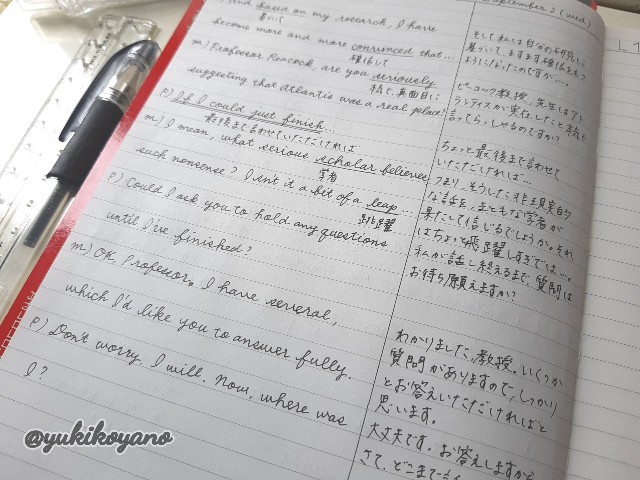 and based on my research, I have
基づいて
become more and more convinced that...
確信して
m) Professor Peacock, are you seriously
suggesting that Atlantis was a real place?
p) If I could just finish...
最後まで言わせていただければ
m) I mean, what serious scholar believes
学者
such nonsense? Isn't it a bit of a leap...
跳躍
p) Could I ask you to hold any questions
until I've finished?
m) OK, Professor. I have several,
which I'd like you to answer fully.
p) Don't worry, I will. Now, where was
I?
September 2 (wed)
そして私は自分の研究に
基づいて、ますます確信をもつ
ようになったのですが...。
ピーコック教授、先生はアト
ランティスが実在したと本気で
言ってらっしゃるのですか?
ちょっと最後まで言わせて
いただければ...。
つまり、そうした非現実的
な話を、まともな学者が
果たして信じるでしょうか。それ
はちょっと飛躍しすぎでは...。
私が話し終えるまで、質問は
お待ち願えますか?
わかりました、教授。いくつか
質問がありますので、しっかり
とお答えいただければと
思います。
大丈夫です。お答えしますから
さて、どこまで
@yukikoyano